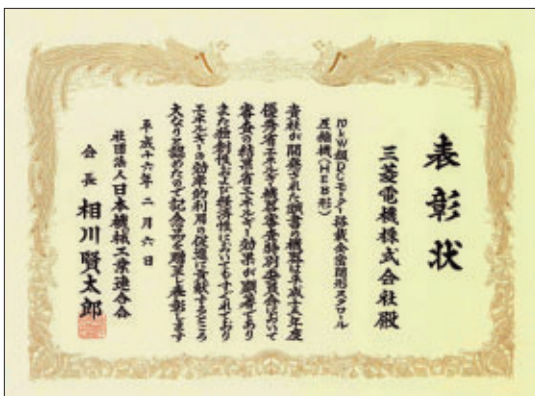 表彰状
三菱電機株式会社殿
10kW級DCモーター搭載全密閉形スクロール
圧縮機(HEB形)
貴社が開発された頭書の機器は平成十五年度
優秀省エネルギー機器審査特別委員会において
審査の結果省エネルギー効果が顕著であり
また独創性および経済性においてもすぐれており
エネルギーの効率的利用の促進に貢献するところ
大なりと認めたので記念品を贈呈し表彰します
平成十六年二月六日
社団法人日本機械工業連合会
会長 相川賢太郎